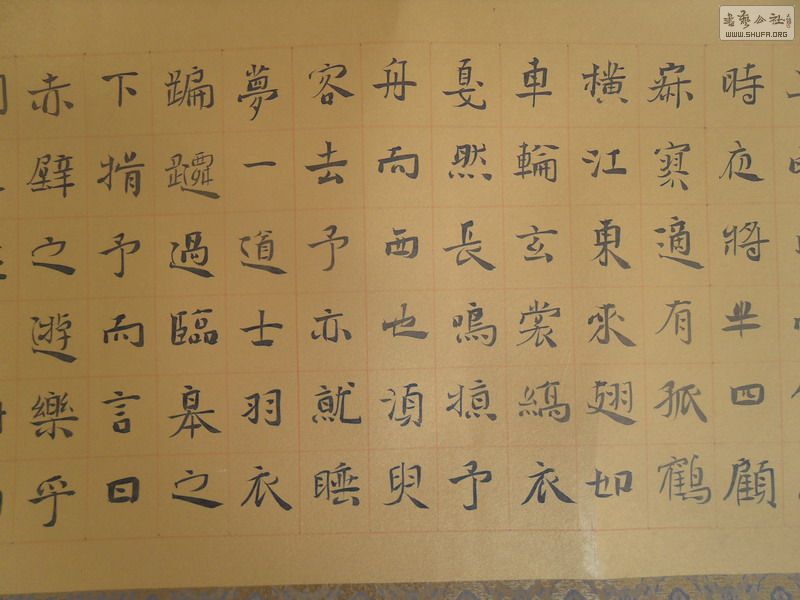 時夜將半四顧
寂寥適有孤鶴
橫江東來翅如
車輪玄裳縞衣
戛然長鳴掠予
舟而西也須臾
客去予亦就睡
夢一道士羽衣
蹁躚過臨皋之
下揖予而言曰
赤壁之遊樂乎
書藝公社
WWW.SHUFA.ORG